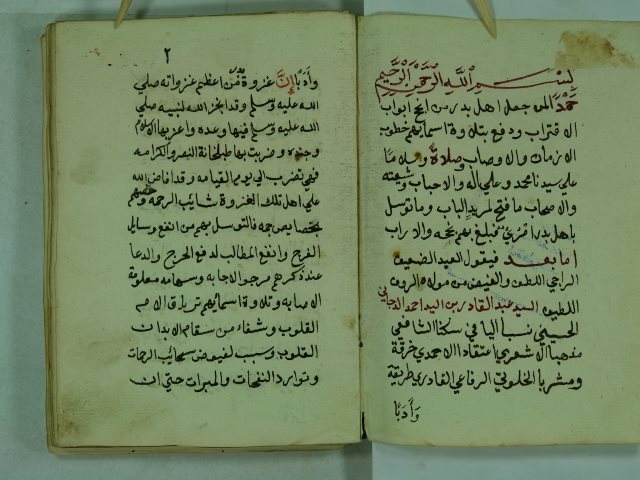 بسم الله الرحمن الرحيم
حمدا لمن جعل اهل بدر من انجح ابواب
الاقتراب ودفع بتلاوة اسمايهم خطوب
الازمان والاوصاب وصلاة وسلاما
على سيدنا محمد وعلى اله والاحباب وشيعته
والاصحاب ما فتح لمريد الباب وما توسل
باهل بدر فبلغ بهم نجحه والاراب
اما بعد فيقول العبد الضعيف
الراجي اللطف والفيض من مولاه الروف
اللطيف السيد عبد القادر بن السيد احمد
الحسيني نسبا اليافي سكنا الشافعي
مذهبا الاشعري اعتقادا الاحمدي خرقة
ومشربا الخلوتي الرفاعي القادري طريقة
وأدبا
٢
وأدبا إن غزوة من اعظم غزواته صلي
الله عليه وسلم وقد انجز الله لنبيه صلي
الله عليه وسلم فيها وعده واعز بها الاسلام
وجنده وضربت بها طبلخانة النصر والكرامه
فهي تضرب الي يوم القيامه وقد افاض الله
علي اهل تلك الغزوة شايب الرحمه وخصهم
بخصايص جمه فالتوسل بهم من انفع وسايل
الفرج وانفع المطالب لدفع الحرج والدعا
عند ذكرهم مرجو الاجابه وسهامه معلومة
الاصابه وتلاوة اسمايهم ترياق
القلوب وشفاء من سقام الابدان
القلوب وسبب لفيوض سحائب الرحمات
وتوارد النفحات والمبرات حتي ان